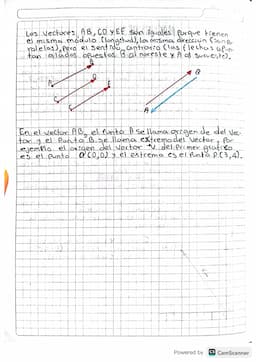 Los vectores AB, CD y EF son iguales porque tienen
el mismo módulo (longitud), la misma dirección (son pa
ralelos), pero el sentido, contrario (las flechas apun
tan alados opuestos B al noreste y A al suroeste).
B
D
A
C
F
E
B
A
En el vector AB, el punto A se llama origen de del vec-
tor y el punto B se llama extremo del vector, por
ejemplo el origen del vector V del primer gráfico
es el punto O(0,0) y el extremo es el punto P(3,4).
Powered by CS CamScanner